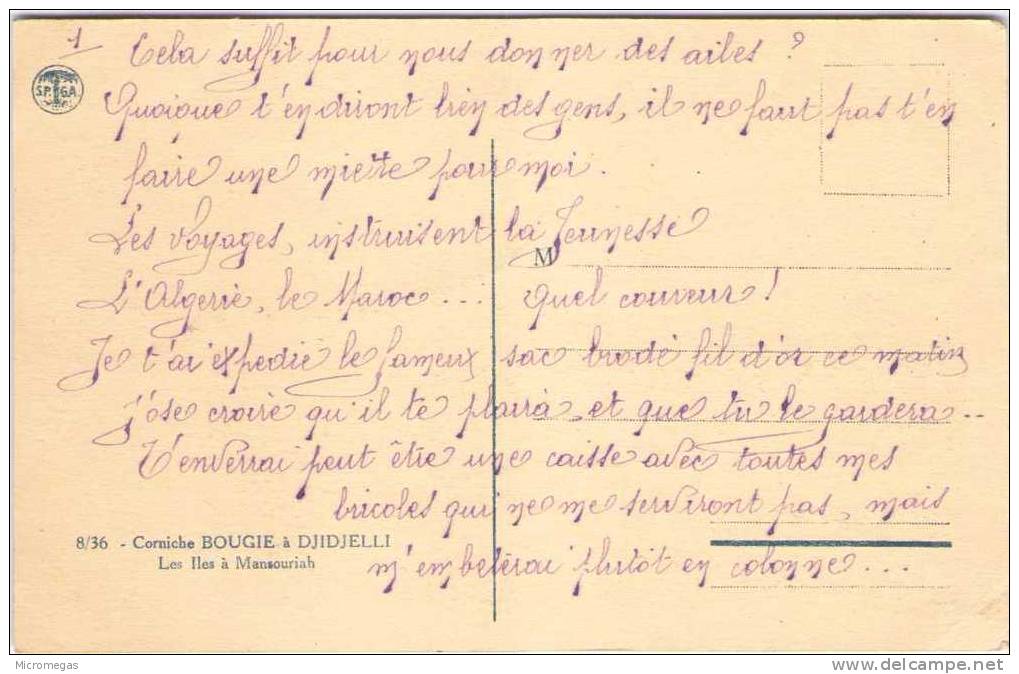 1
Cela suffit pour nous donner des ailes ?
S.P.G.A.
Quoique t'en diront bien des gens, il ne faut pas t'en
faire une miette pour moi.
Les Voyages, instruisent la Jeunesse
M
L'Algerie, le Maroc ... quel couveur !
Je t'ai expedié le fameux sac brodé fil d'or ce matin
j'ose croire qu'il te plaira, et que tu le gardera ...
T'enverrai peut être une caisse avec toutes mes
bricoles qui ne me serviront pas, mais
m'embeterai plutôt en colonne ...
8/36 - Corniche BOUGIE à DJIDJELLI
Les Iles à Mansouriah
Micromegas
www.delcampe.net